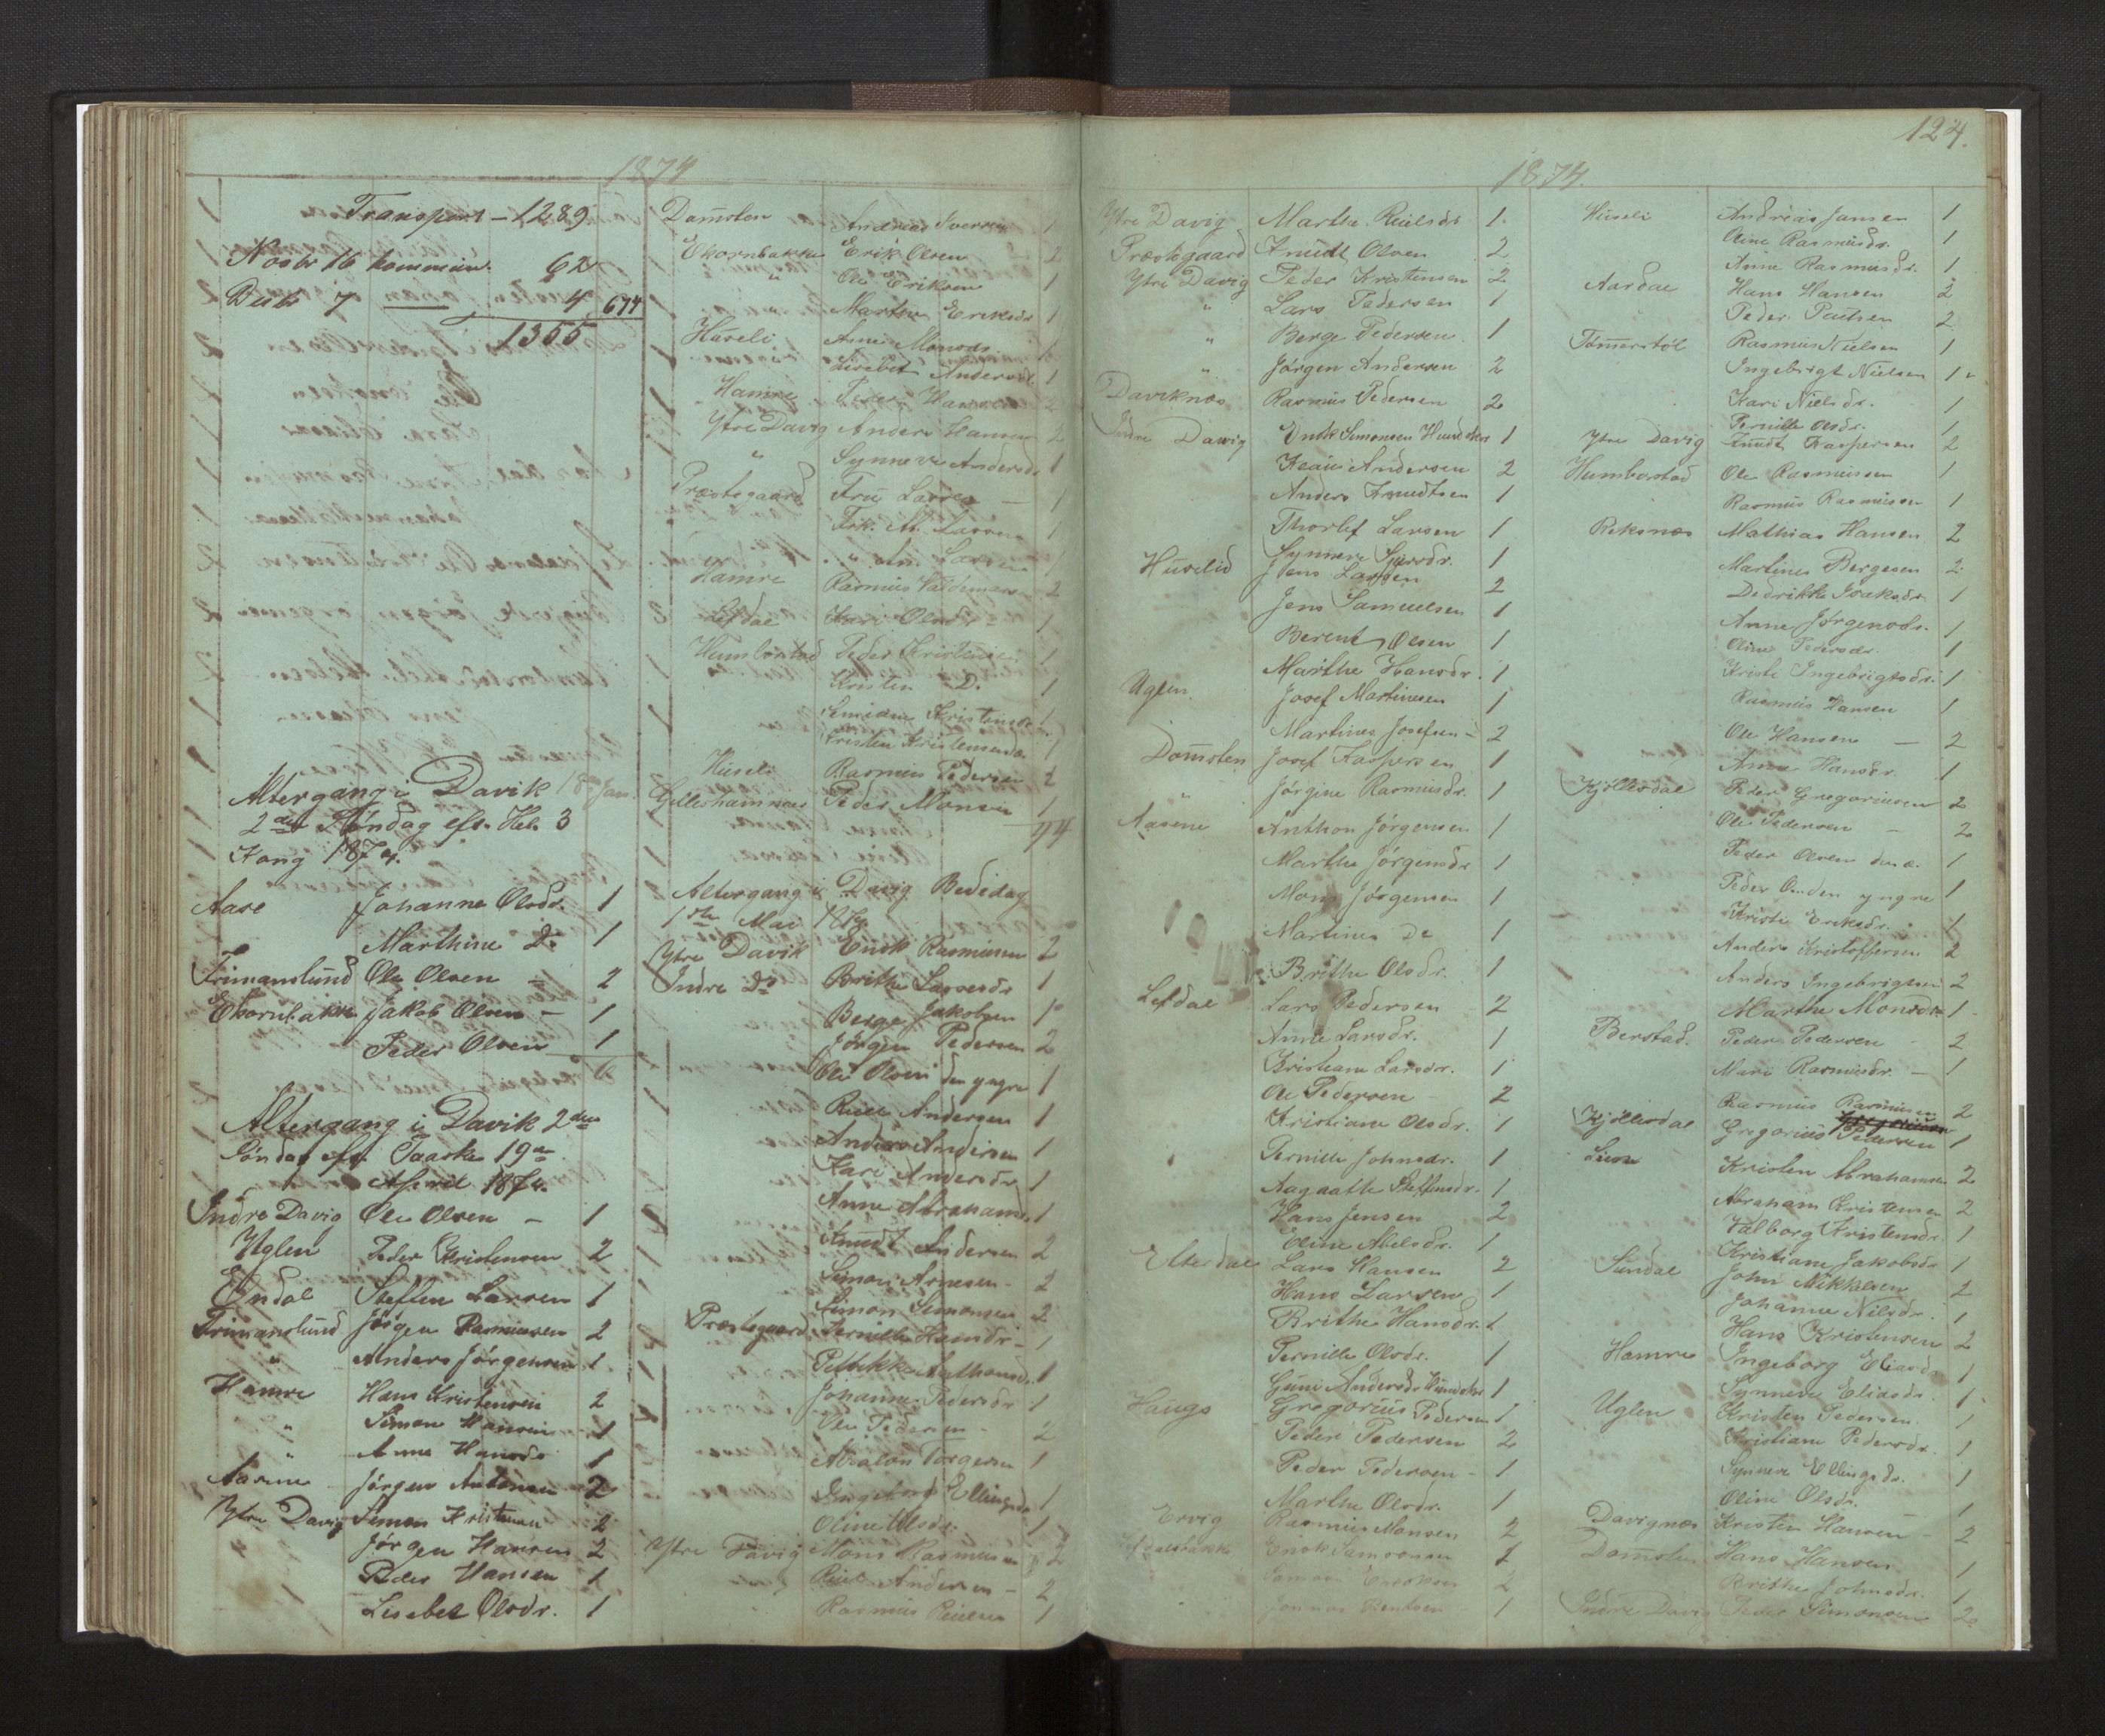 1874
Transport - 1289
62
4 674
1355
Altergang i Davik 18de Jan.
2den Søndag eft. Hel. 3
Kong 1874.
Aase Johanne Olsdr. 1
Marthine Do 1
Frimanslund Ole Olsen - 2
Ekornbakke Jakob Olsen - 1
Peder Olsen 1
6
Altergang i Davik 2den
Søndag eft. Paaske 19de
April 1874.
Indre Davig Ole Olsen - 1
Uglen Peder Kristensen 2
Endal Steffen Larsen 1
Frimanslund Jørgen Rasmusen 2
" Anders Jørgensen 1
Hamre Hans Kristensen 2
" Simon Hansen 1
" Anne Hansdr 1
Aasene Jørgen Antonsen 2
Ytre Davig Simon Kristensen 2
Jørgen Hansen 2
Peder Hansen 1
Lisebet Olsdr. 1
Domsten Andreas Sversen 1
Ekornbakke Erik Olsen 2
" Ole Eriksen 1
Marthe Eriksdr 1
Huseli Anne Monsdr. 1
Lisebet Andersdr 1
Hamre Peder Hansen 2
Ytre Davig Anders Hansen 2
" Synneve Andersdr 1
Præstegaard Fru Lassen - 1
Frk. M. Lassen 1
Lassen 1
Hamre Rasmus Valdemarsen 2
Lefdal Kari Olsdr. 1
Humborstad Peder Kristensen 1
Kristen D. 1
Kristensdr 1
Kristen Kristensen d.æ. 1
Huseli Rasmus Pedersen 2
Gilleshammer Peder Monsen 1
44
Altergang i Davig Bededag
1ste Mai 1874
Ytre Davik Enok Rasmusen 2
Indre Do Brithe Larsesdr 1
Berge Jakobsen 1
Jørgen Pedersen 2
Ole Olsen den yngre 1
Ruel Andersen 1
Anders Andersen 1
Kari Andersdr 1
Anne Abrahamsd. 1
Knudt Andersen 2
Simon Arnesen - 2
Simon Simonsen 2
Præstegaard Pernille Hansdr - 1
Anthonsd. 1
Johanne Pedersdr 1
Ole Pedersen - 2
Absalon Torgersen 1
Ingeborg Ellingsdr 1
Oline Olsdr. 1
Ytre Davig Mons Rasmusen 2
Ruel Andersen - 2
Rasmus Ruelsen 1
124.
1874.
Ytre Davig Marthe Ruelsdr 1.
Præstegaard Knudt Olsen 2
Ytre Davig Peder Kristensen 2
" Lars Pedersen 1
" Berge Pedersen 1
" Jørgen Andersen 2
Daviknes Rasmus Pedersen 2
Indre Davig Enok Simonsen Hundskar 1
Andersen 2
Anders Knudtsen 1
Thorlef Larsen 1
Synneve Sjursdr. 1
Huselid Jens Larsen 2
Jens Samuelsen 1
Berent Olsen 1
Marthe Hansdr. 1
Uglen. Josef Martinusen 1
Martinus Josefsen - 2
Domsten Josef Kaspersen 1
" Jørgine Rasmusdr. 1
Aasene Anthon Jørgensen 1
Marthe Jørgensdr 1
Mons Jørgensen 1
Martinus Do 1
Brithe Olsdr. 1
Lefdal Lars Pedersen 2
Anne Larsdr. 1
Kristiane Larsdr. 1
Ole Pedersen - 2
Kristiane Olsdr. 1
Pernille Johnsdr. 1
Aagaathe Steffensdr. 1
Hans Jensen 2
Oline Abelsdr. 1
Elterdal Lars Hansen 2
Hans Larsen 1
Brithe Hansdr. 1
Pernille Olsdr. 1
Guni Andersdr Hundskar 1
Haugs Gregorius Pedersen 1
Peder Pedersen 2
Peder Pedersen - 1
Marthe Olsdr. 1
Ervig Rasmus Monsen 2
Lefdalsbakk Enok Samsonsen 2
Samson Enoksen 2
Jonnas Berntsen 1
Huseli Andreas Jansen 1
Oline Rasmusdr. 1
Anne Rasmusdr. 1
Aardal Hans Hansen 2
Peder Paulsen 2
Tømmerstøl Rasmus Nielsen 1
Ingebrigt Nielsen 1
Kari Nielsdr. 1
Pernille Olsdr. 1
Ytre Davig Knudt Kaspersen 2
Humborstad Ole Rasmusen 1
Rasmus Rasmusen 1
Reksnes Mathias Hansen 2
Martinus Bergesen 2
Dedrikke Isaksdr. 1
Anne Jørgensdr. 1
Oline Pedersdr. 1
Kristi Ingebrigtsdr. 1
Rasmus Hansen 1
Ole Hansen - 2
Anne Hansdr. 1
Kjøllesdal Peder Gregoriusen 2
Ole Pedersen - 2
Peder Olsen den æ. 1
Peder O. den yngre 1
Kristi Eriksdr. 1
Anders Kristoffersen 2
Anders Ingebrigtsen 2
Marthe Monsdr. 1
Berstad. Peder Pedersen - 2
Mari Rasmusdr. - 1
Rasmus Rasmusen 2
Kjøllesdal Gregorius Pedersen 1
Kristen Abrahamsen 2
Abraham Kristensen 2
Valborg Kristensdr. 1
Kristiane Jakobsdr 1
Sundal John Mikkelsen 2
Johanne Nilsdr. 1
Hans Kristensen 2
Hamre Ingeborg Eliasdr. 1
Synneve Eliasdr. 1
Uglen Kristen Pedersen. 1
Kristiane Pedersdr. 1
Synneve Ellingsdr. 1
Oline Olsdr. 1
Davignes Kristen Hansen - 2
Domsten Hans Hansen 1
Brithe Johnsdr. 1
Indre Davig Peder Simonsen 2